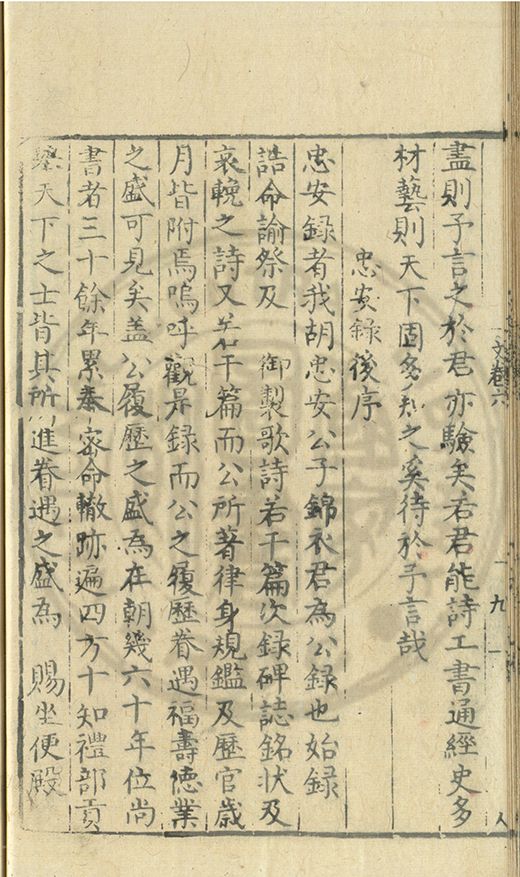 文卷六
九
盡則予言之於君亦驗矣若君能詩工書通經史多
材藝則天下固多知之奚待於予言哉
忠安錄後序
忠安錄者我胡忠安公子錦衣君為公錄也始錄
誥命諭祭及 御製歌詩若干篇次錄碑誌銘狀及
哀輓之詩又若干篇而公所著律身規鑑及歷官歲
月皆附焉嗚呼觀是錄而公之履歷眷遇福壽德業
之盛可見矣盖公履歷之盛為在朝幾六十年位尚
書者三十餘年累奉密命轍跡遍四方十知禮部貢
舉天下之士皆其所進眷遇之盛為 賜坐便殿